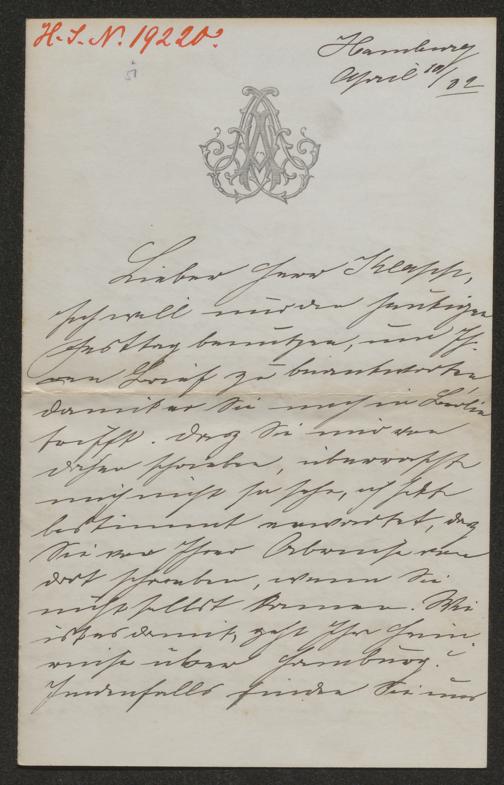 H. I. N. 19220.
Hamburg
April 10/02
Lieber Herr Klasen,
Ich will nur den heutigen
Festtag benutzen, um Ih-
ren Brief zu beantworten,
damit er Sie noch in Berlin
trifft. Daß Sie mir von
daher schreiben, überraschte
mich nicht so sehr, ich hatte
bestimmt erwartet, daß
Sie vor Ihrer Abreise von
dort schreiben, wenn Sie
nicht selbst kamen. Wie
ist es damit, geht Ihre Heim-
reise über Hamburg?
Jedenfalls finden Sie uns